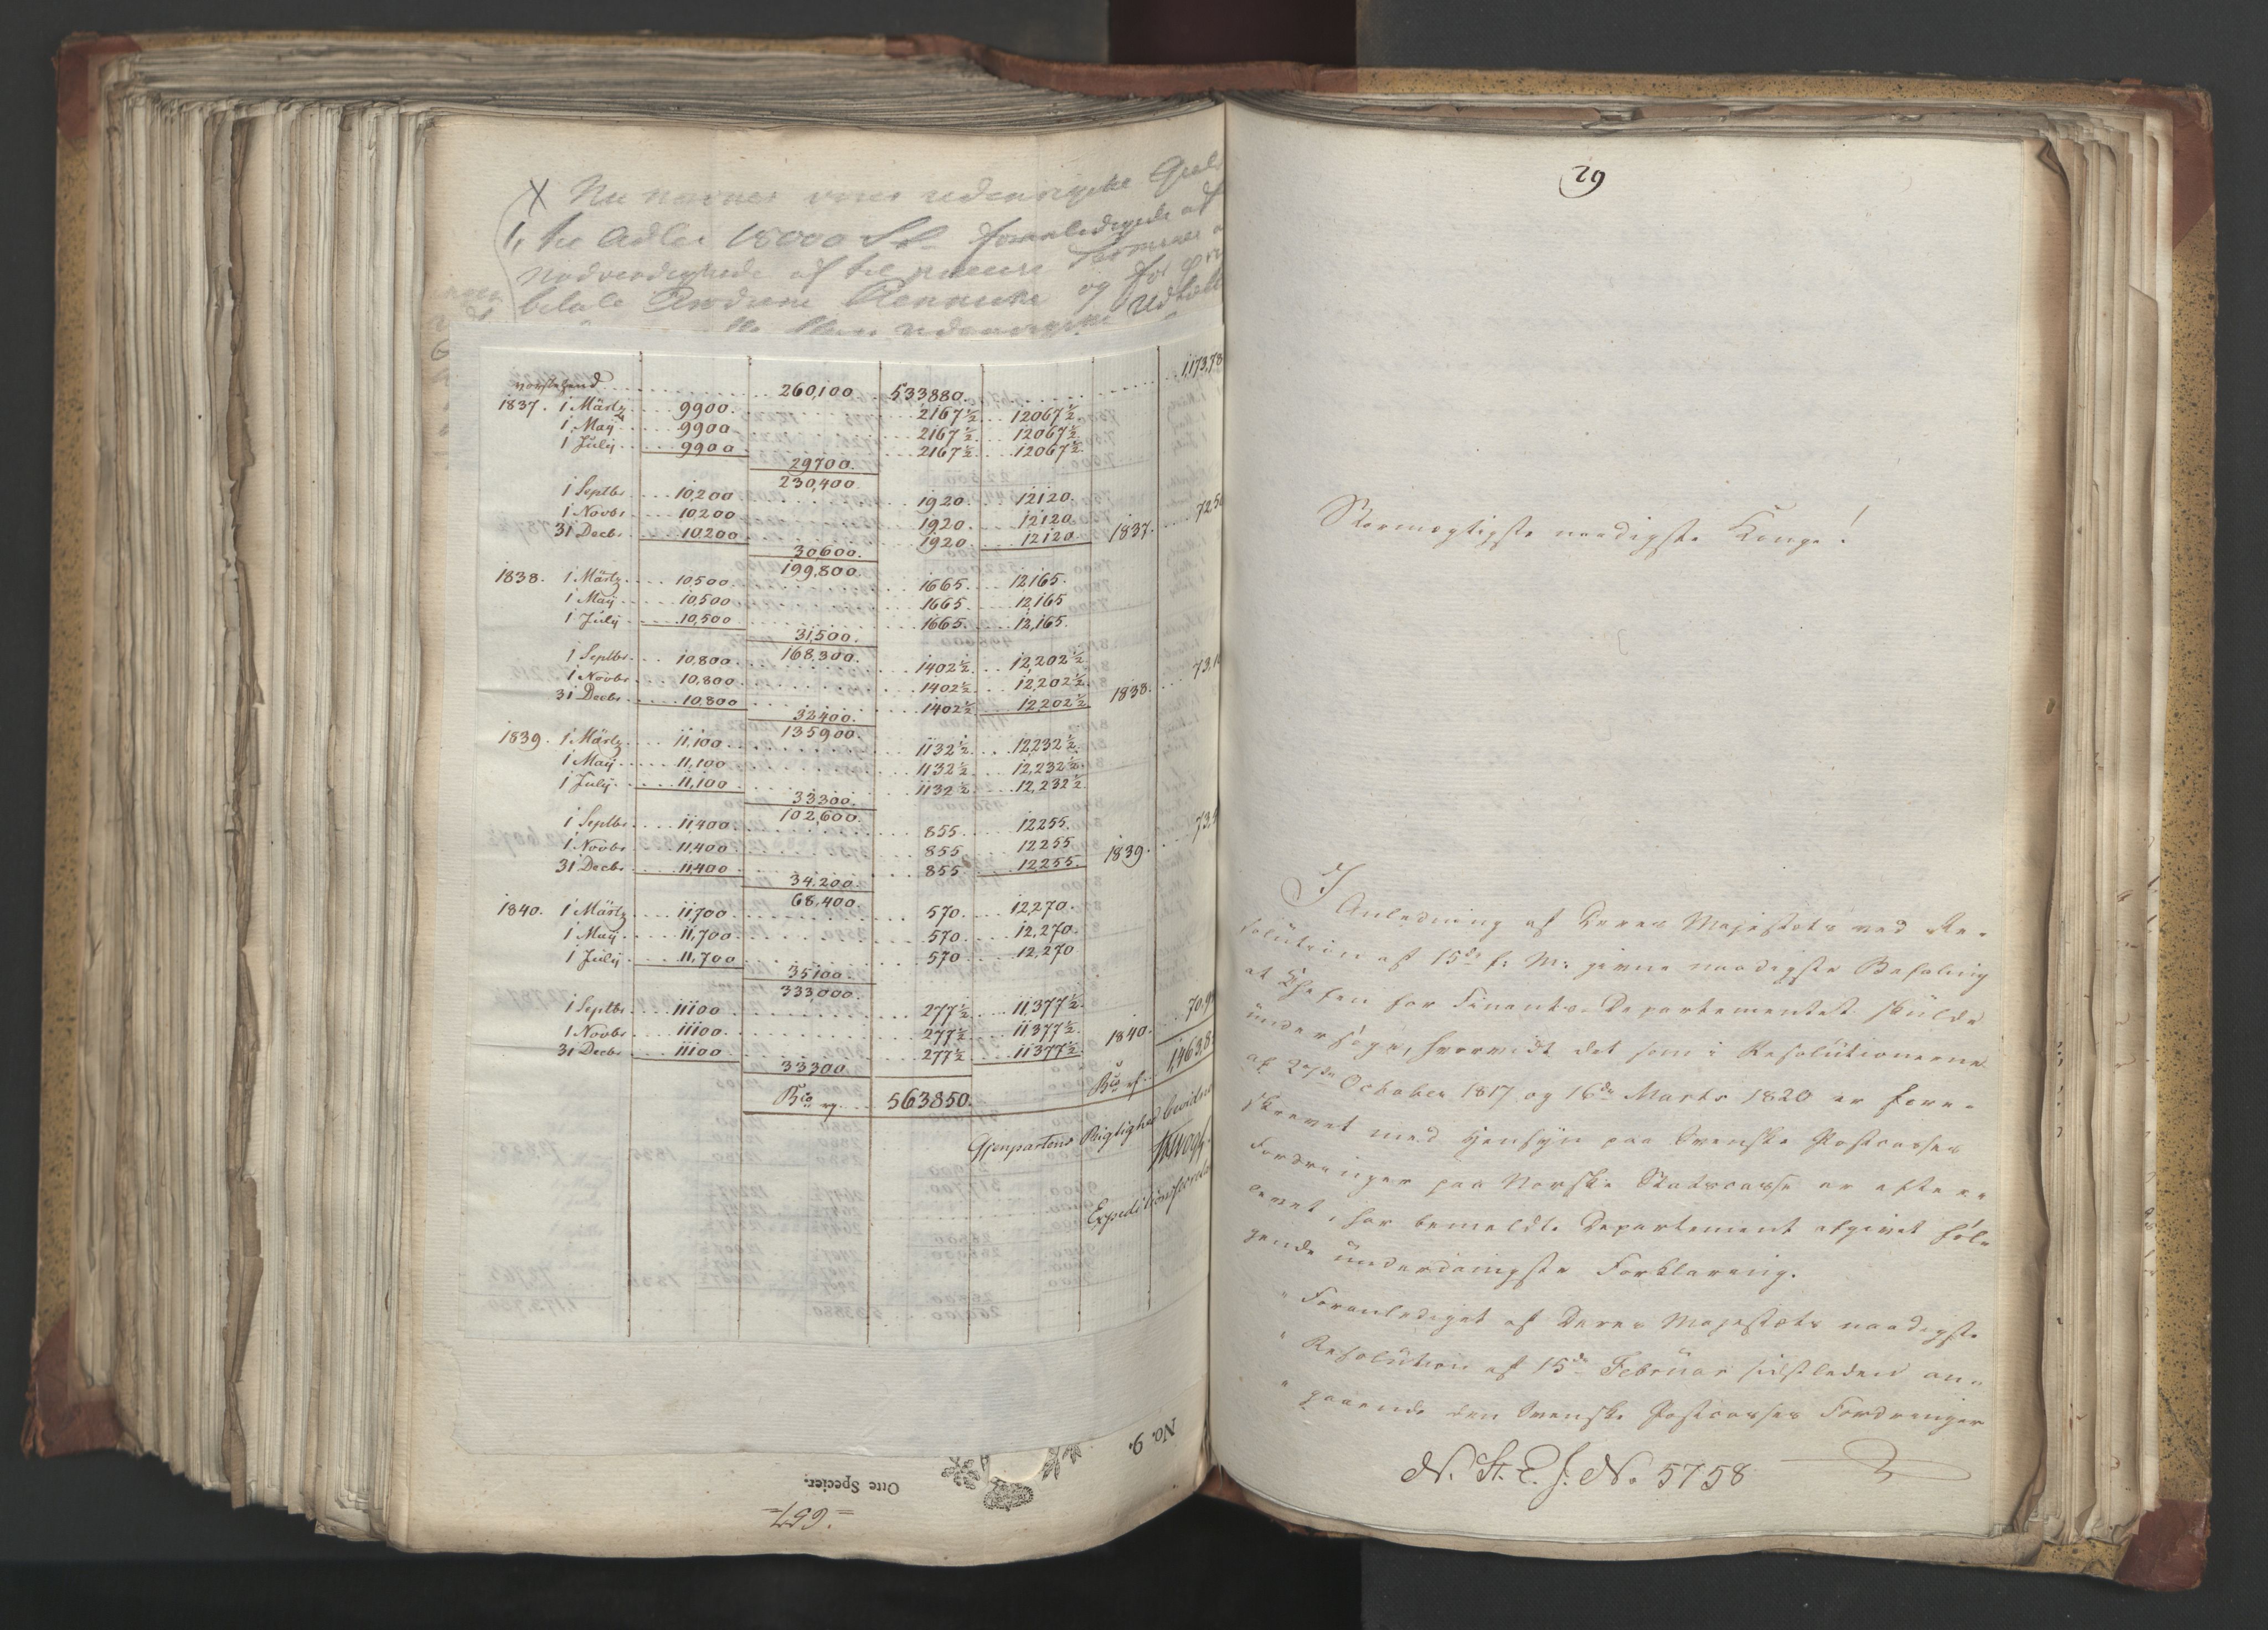 X Nu
1, til Adler 18000 Sp foranledigede af
betale og for
vorstehend 260,100 533880. 1,173,78
1837. 1 Märtz 9900. 2167½ 12067½
1 Maÿ 9900 2167½ 12067½
1 Julÿ 9900 2167½ 12067½
29700.
230,400
1 Septbr 10,200 1920. 12120.
1 Novbr 10200 1920. 12120
31 Decbr 10,200 1920. 12120. 1837. 725
30600.
199,800.
1838. 1 Märtz 10,500 1665. 12,165.
1 Maÿ 10,500 1665. 12,165
1 Julÿ 10,500 1665. 12,165.
31,500.
168,300.
1 Septbr 10,800 1402½ 12,202½
1 Novbr 10,800 1402½ 12,202½
31 Decbr 10,800 1402½ 12,202½ 1838. 73,1
32400.
135900.
1839. 1 Märtz 11,100 1132½ 12,232½
1 Maÿ 11,100 1132½ 12,232½
1 Julÿ 11,100 1132½ 12,232½
33300.
102,600.
1 Septbr 11,400 855. 12255.
1 Novbr 11,400 855. 12255
31 Decbr 11,400 855. 12,255. 1839. 73,5
34.200.
68.400.
1840. 1 Märtz 11,700 570. 12,270.
1 Maÿ 11,700 570. 12,270.
1 Julÿ 11,700 570 12,270
35,100.
333,000.
1 Septbr 11100 277½ 11,377½
1 Novbr 11100. 277½ 11377½
31 Decbr 11100 277½ 11377½ 1840. 70,9
33300
Bco 563850. Bco 1,463,8
Gjenpartens Rigtighed bevidner
Expeditionssecretair
No. 9.
Otte Specier.
=657=
29
Stormægtigste naadigste Konge!
I Anledning af Deres Majestæts ved Re-
solution af 15de f: M: givne naadigste Befaling
at Chefen for Finants-Departementet skulde
undersøge, hvorvidt det som i Resolutionerne
af 27de October 1817 og 16de Marts 1820 er fore-
skrevet med Hensyn paa Svenske Postcasses
Fordringer paa Norske Statscasse er efter-
levet, har bemeldte Departement afgivet føl-
gende underdanigste Forklaring.
" Foranlediget af Deres Majestæts naadigste
" Resolution af 15de Februar sidstleden an-
" gaaende den Svenske Postcasses Fordringer
N. St. E. J. No. 5758